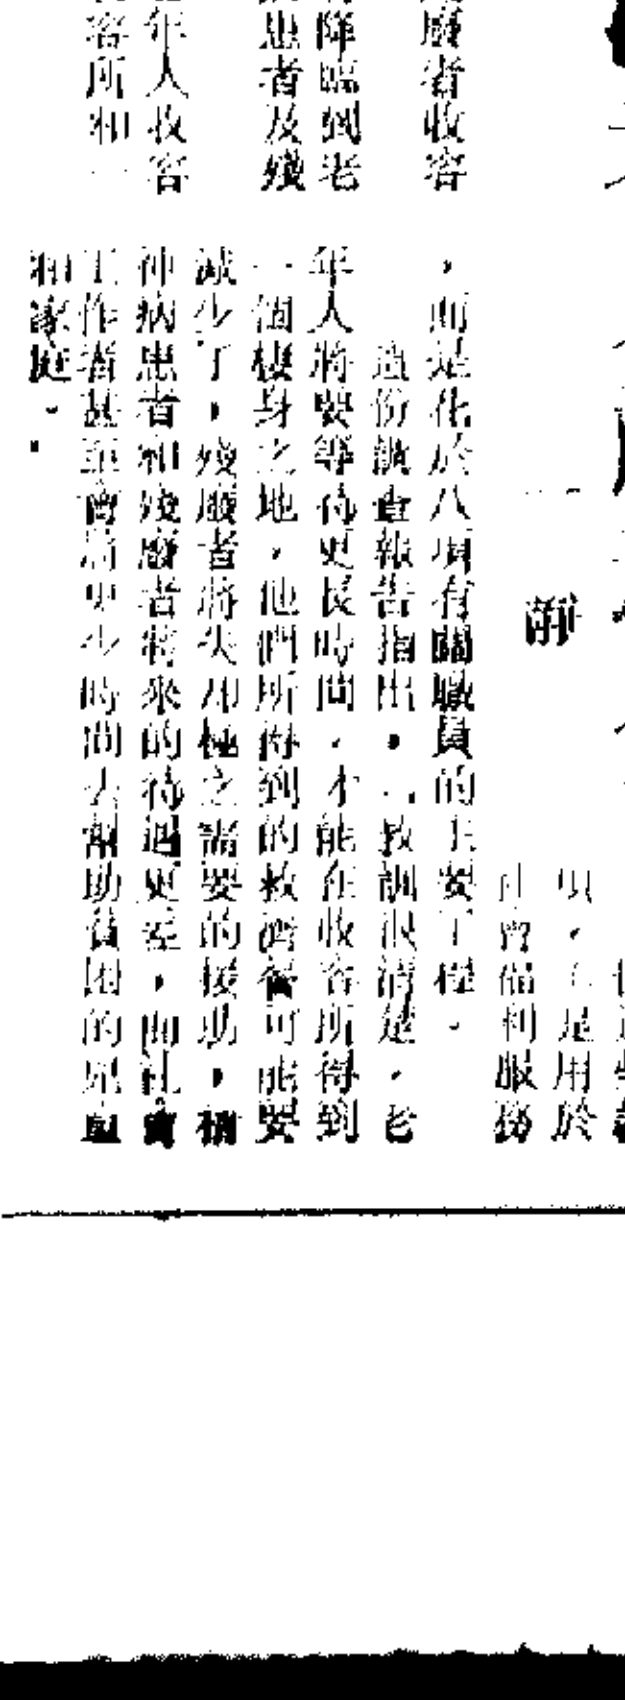 是用於
社會福利服務
廢者收容
降臨到老
患者及殘
年人收容
容所和一
，而是化於八項有關職員的主要工程。
這份調查報告指出，「教訓很清楚，老
年人將要等待更長時間，才能在收容所得到
一個棲身之地，他們所得到的救濟餐可能要
減少了，殘廢者將失却極之需要的援助，精
神病患者和殘廢者將來的待遇更差，而社會
工作者甚至會將更少時間去幫助貧困的兒童
和家庭。"